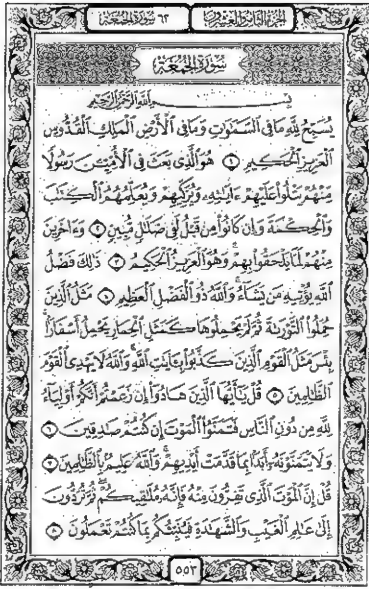 الجزء الثامن والعشرون ٦٢ سورة الجمعة
سُورَةُ الجُمُعَةِ
بِسْمِ ٱللَّهِ ٱلرَّحْمَٰنِ ٱلرَّحِيمِ
يُسَبِّحُ لِلَّهِ مَا فِي ٱلسَّمَٰوَٰتِ وَمَا فِي ٱلْأَرْضِ ٱلْمَلِكِ ٱلْقُدُّوسِ
ٱلْعَزِيزِ ٱلْحَكِيمِ ١ هُوَ ٱلَّذِي بَعَثَ فِي ٱلْأُمِّيِّـۧنَ رَسُولًا
مِّنْهُمْ يَتْلُوا۟ عَلَيْهِمْ ءَايَٰتِهِۦ وَيُزَكِّيهِمْ وَيُعَلِّمُهُمُ ٱلْكِتَٰبَ
وَٱلْحِكْمَةَ وَإِن كَانُوا۟ مِن قَبْلُ لَفِي ضَلَٰلٍ مُّبِينٍ ٢ وَءَاخَرِينَ
مِنْهُمْ لَمَّا يَلْحَقُوا۟ بِهِمْ ۚ وَهُوَ ٱلْعَزِيزُ ٱلْحَكِيمُ ٣ ذَٰلِكَ فَضْلُ
ٱللَّهِ يُؤْتِيهِ مَن يَشَآءُ ۚ وَٱللَّهُ ذُو ٱلْفَضْلِ ٱلْعَظِيمِ ٤ مَثَلُ ٱلَّذِينَ
حُمِّلُوا۟ ٱلتَّوْرَىٰةَ ثُمَّ لَمْ يَحْمِلُوهَا كَمَثَلِ ٱلْحِمَارِ يَحْمِلُ أَسْفَارًۢا ۚ
بِئْسَ مَثَلُ ٱلْقَوْمِ ٱلَّذِينَ كَذَّبُوا۟ بِـَٔايَٰتِ ٱللَّهِ ۚ وَٱللَّهُ لَا يَهْدِي ٱلْقَوْمَ
ٱلظَّٰلِمِينَ ٥ قُلْ يَٰٓأَيُّهَا ٱلَّذِينَ هَادُوٓا۟ إِن زَعَمْتُمْ أَنَّكُمْ أَوْلِيَآءُ
لِلَّهِ مِن دُونِ ٱلنَّاسِ فَتَمَنَّوُا۟ ٱلْمَوْتَ إِن كُنتُمْ صَٰدِقِينَ ٦
وَلَا يَتَمَنَّوْنَهُۥٓ أَبَدًۢا بِمَا قَدَّمَتْ أَيْدِيهِمْ ۚ وَٱللَّهُ عَلِيمٌۢ بِٱلظَّٰلِمِينَ ٧
قُلْ إِنَّ ٱلْمَوْتَ ٱلَّذِي تَفِرُّونَ مِنْهُ فَإِنَّهُۥ مُلَٰقِيكُمْ ۖ ثُمَّ تُرَدُّونَ
إِلَىٰ عَٰلِمِ ٱلْغَيْبِ وَٱلشَّهَٰدَةِ فَيُنَبِّئُكُم بِمَا كُنتُمْ تَعْمَلُونَ ٨
٥٥٣